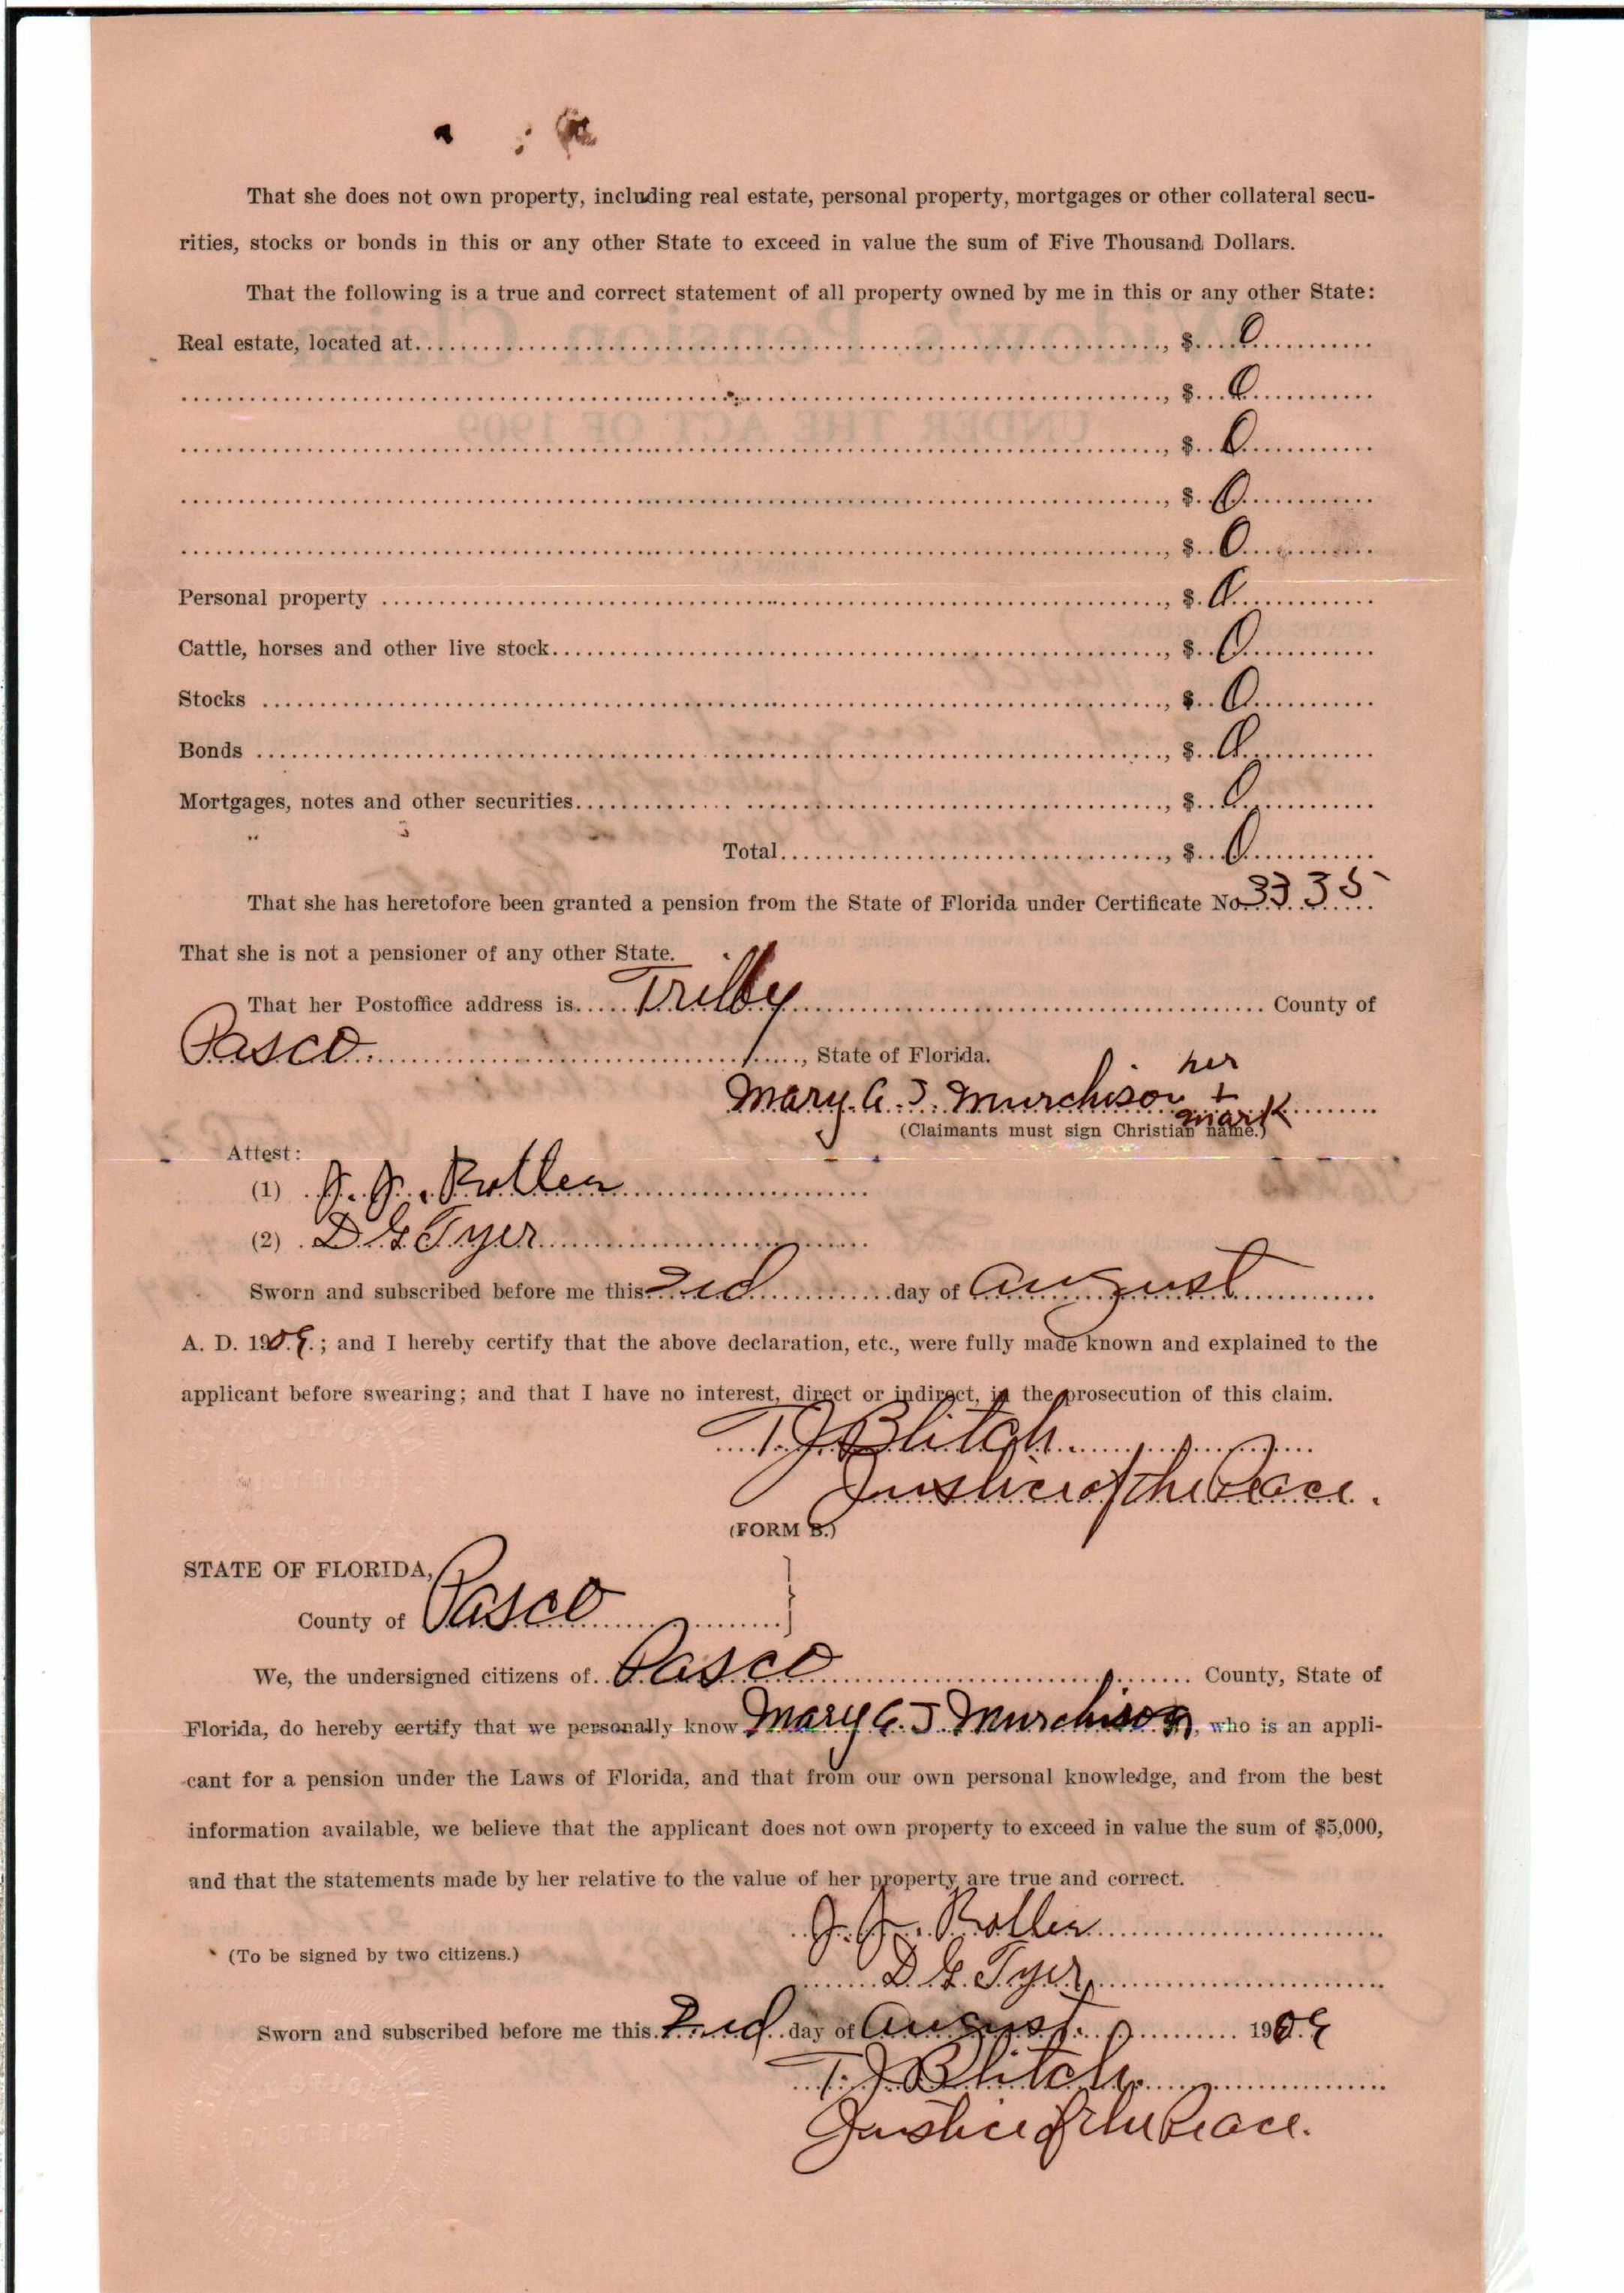 That she does not own property, including real estate, personal property, mortgages or other collateral secu-
rities, stocks or bonds in this or any other State to exceed in value the sum of Five Thousand Dollars.
That the following is a true and correct statement of all property owned by me in this or any other State:
Real estate, located at, $ 0
, $ 0
, $ 0
, $ 0
, $ 0
Personal property, $ 0
Cattle, horses and other live stock, $ 0
Stocks, $ 0
Bonds, $ 0
Mortgages, notes and other securities, $ 0
Total, $ 0
That she has heretofore been granted a pension from the State of Florida under Certificate No. 3335
That she is not a pensioner of any other State.
That her Postoffice address is Trilby County of
Pasco, State of Florida.
her
Mary A. J. Murchison +
mark
(Claimants must sign Christian name.)
Attest:
(1) J. J. Bolles
(2) D G Tyer
Sworn and subscribed before me this 2nd day of August
A. D. 1909; and I hereby certify that the above declaration, etc., were fully made known and explained to the
applicant before swearing; and that I have no interest, direct or indirect, in the prosecution of this claim.
T. J. Blitch
Justice of the Peace.
(FORM B.)
STATE OF FLORIDA,
County of Pasco }
We, the undersigned citizens of Pasco County, State of
Florida, do hereby certify that we personally know Mary A. J Murchison, who is an appli-
cant for a pension under the Laws of Florida, and that from our own personal knowledge, and from the best
information available, we believe that the applicant does not own property to exceed in value the sum of $5,000,
and that the statements made by her relative to the value of her property are true and correct.
J. J. Bolles
(To be signed by two citizens.)
D. G. Tyer
Sworn and subscribed before me this 2nd day of August 1909
T. J. Blitch
Justice of the Peace.